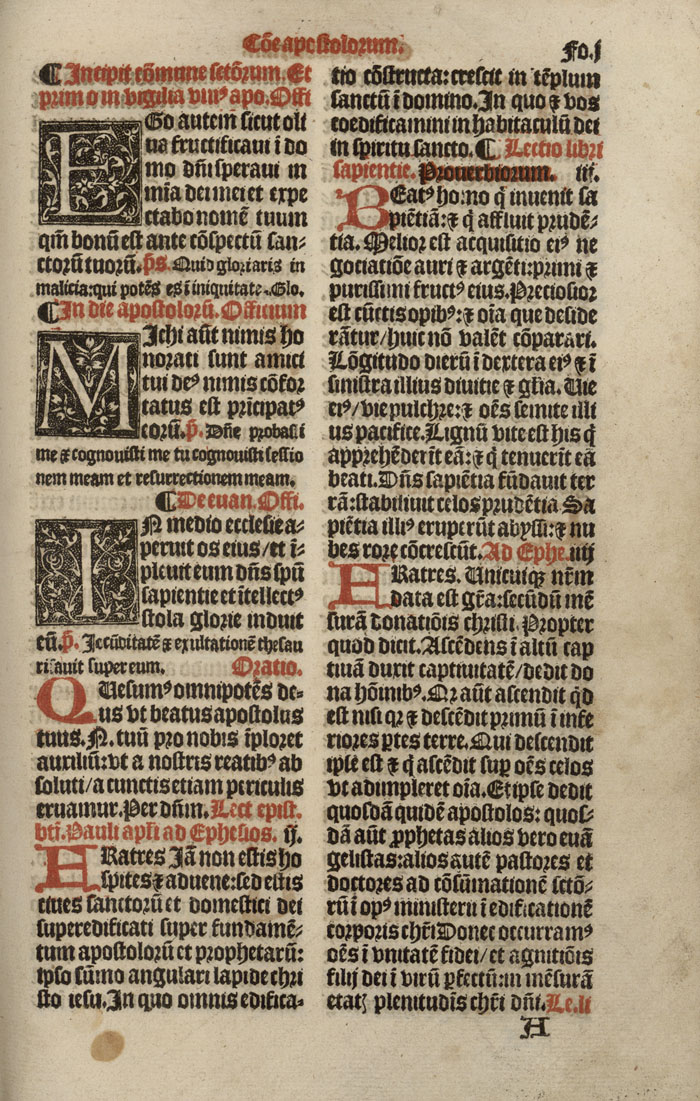 Cōe apostolorum.
Fo.j
¶ Incipit cōmune sctōrum. Et
primo in vigilia vniꝰ apo. Offi
EGo autem sicut oli
ua fructificaui ī do
mo dn̄i speraui in
mīa dei mei et expe
ctabo nomē tuum
qm̄ bonū est ante cōspectū san-
ctorū tuorū. p̄s. Quid gloriaris in
malicia: qui potēs es ī iniquitate. Glo.
¶ In die apostolorū. Officium
MIchi aūt nimis ho
norati sunt amici
tui deꝰ nimis cōfor
tatus est prīcipatꝰ
eorū. p̄. Dn̄e probasti
me ⁊ cognouisti me tu cognouisti sessio
nem meam et resurrectionem meam.
¶ De euan. Offi.
IN medio ecclesie a-
peruit os eius / et ī-
pleuit eum dn̄s spū
sapientie et ītellectꝰ
stola glorie induit
eū. p̄. Iocūditatē ⁊ exultationē thesau
risauit super eum. Oratio.
QUesumꝰ omnipotēs de-
us vt beatus apostolus
tuus. N. tuū pro nobis īploret
auxiliū: vt a nostris reatibꝰ ab
soluti / a cunctis etiam periculis
eruamur. Per dn̄m. Lect epist.
bti. Pauli apl̄i ad Ephesios. ij.
FRatres Iā non estis ho
spites ⁊ aduene: sed estis
ciues sanctorū et domestici dei
superedificati super fundamē-
tum apostolorū et prophetarū:
ipso sūmo angulari lapide chri
sto iesu. In quo omnis edifica-
tio cōstructa: crescit in tēplum
sanctū ī domino. In quo ⁊ vos
coedificamini in habitaculū dei
in spiritu sancto. ¶ Lectio libri
sapientie. Prouerbiorum. iij.
BEatꝰ homo q̄ inuenit sa
piētiā: ⁊ q̄ affluit prudē-
tia. Melior est acquisitio eiꝰ ne
gociatiōe auri ⁊ argēti: primi ⁊
purissimi fructꝰ eius. Preciosior
est cūctis opibꝰ: ⁊ oīa que deside
rātur / huic nō valēt cōparari.
Lōgitudo dierū ī dextera eiꝰ ⁊ ī
sinistra illius diuitie ⁊ gl̄ia. Uie
eiꝰ / vie pulchre: ⁊ oēs semite illi
us pacifice. Lignū vite est his q̄
apprehēderīt eā: ⁊ q̄ tenuerīt eā
beati. Dn̄s sapiētia fūdauit ter
rā: stabiliuit celos prudētia Sa
piētia illiꝰ eruperūt abyssi: ⁊ nu
bes rore cōcrescūt. Ad Ephe. iiij
FRatres. Unicuiqꝫ nr̄m
data est gr̄a: secūdū mē
surā donatiōis christi. Propter
quod dicit. Ascēdens ī altū cap
tiuā duxit captiuitatē / dedit do
na hōinibꝰ. Or aūt ascendit qd̄
est nisi qr ⁊ descēdit primū ī infe
riores ꝑtes terre. Qui descendit
ipse est ⁊ q̄ ascēdit suꝑ oēs celos
vt adimpleret oīa. Et ipse dedit
quosdā quidē apostolos: quos-
dā aūt ꝓphetas alios vero euā
gelistas: alios autē pastores et
doctores ad cōsūmationē sctō-
rū ī opꝰ ministerii ī edificationē
corporis chr̄i Donec occurramꝰ
oēs ī vnitatē fidei / et agnitiōis
filij dei ī virū ꝑfectū: in mēsurā
etatꝭ plenitudīs chr̄i dn̄i. Le. li
A